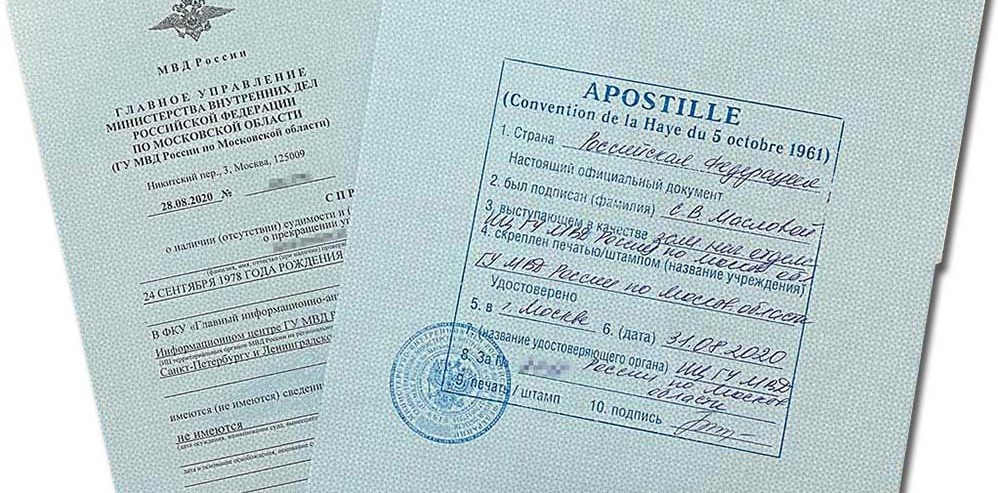 МВД России
ГЛАВНОЕ УПРАВЛЕНИЕ
МИНИСТЕРСТВА ВНУТРЕННИХ ДЕЛ
РОССИЙСКОЙ ФЕДЕРАЦИИ
ПО МОСКОВСКОЙ ОБЛАСТИ
(ГУ МВД России по Московской области)
Никитский пер., 3, Москва, 125009
28.08.2020 №
С П Р
о наличии (отсутствии) судимости и (
о прекращении уг
(фамилия, имя, отчество (при наличии) проверя
24 СЕНТЯБРЯ 1978 ГОДА РОЖДЕНИЯ
В ФКУ «Главный информационно-ан
Информационном центре ГУ МВД Р
(ИЦ территориальных органов МВД России на региональн
Санкт-Петербургу и Ленинградско
имеются (не имеются) сведени
не имеются
(дата осуждения, наименование суда, вынесшего
дата и основание освобождения, основание
APOSTILLE
(Convention de la Haye du 5 octobre 1961)
1. Страна Российская Федерация
Настоящий официальный документ
2. был подписан (фамилия) С.В. Масловой
3. выступающем в качестве зам. нач. отдела
ИЦ ГУ МВД России по Москов. обл.
4. скреплен печатью/штампом (название учреждения)
ГУ МВД России по Москов. области
Удостоверено
5. в г. Москве 6. (дата) 31.08.2020
7. (название удостоверяющего органа) ИЦ ГУ МВД
России по Москов
области
8. За №
9. печать / штамп 10. подпись